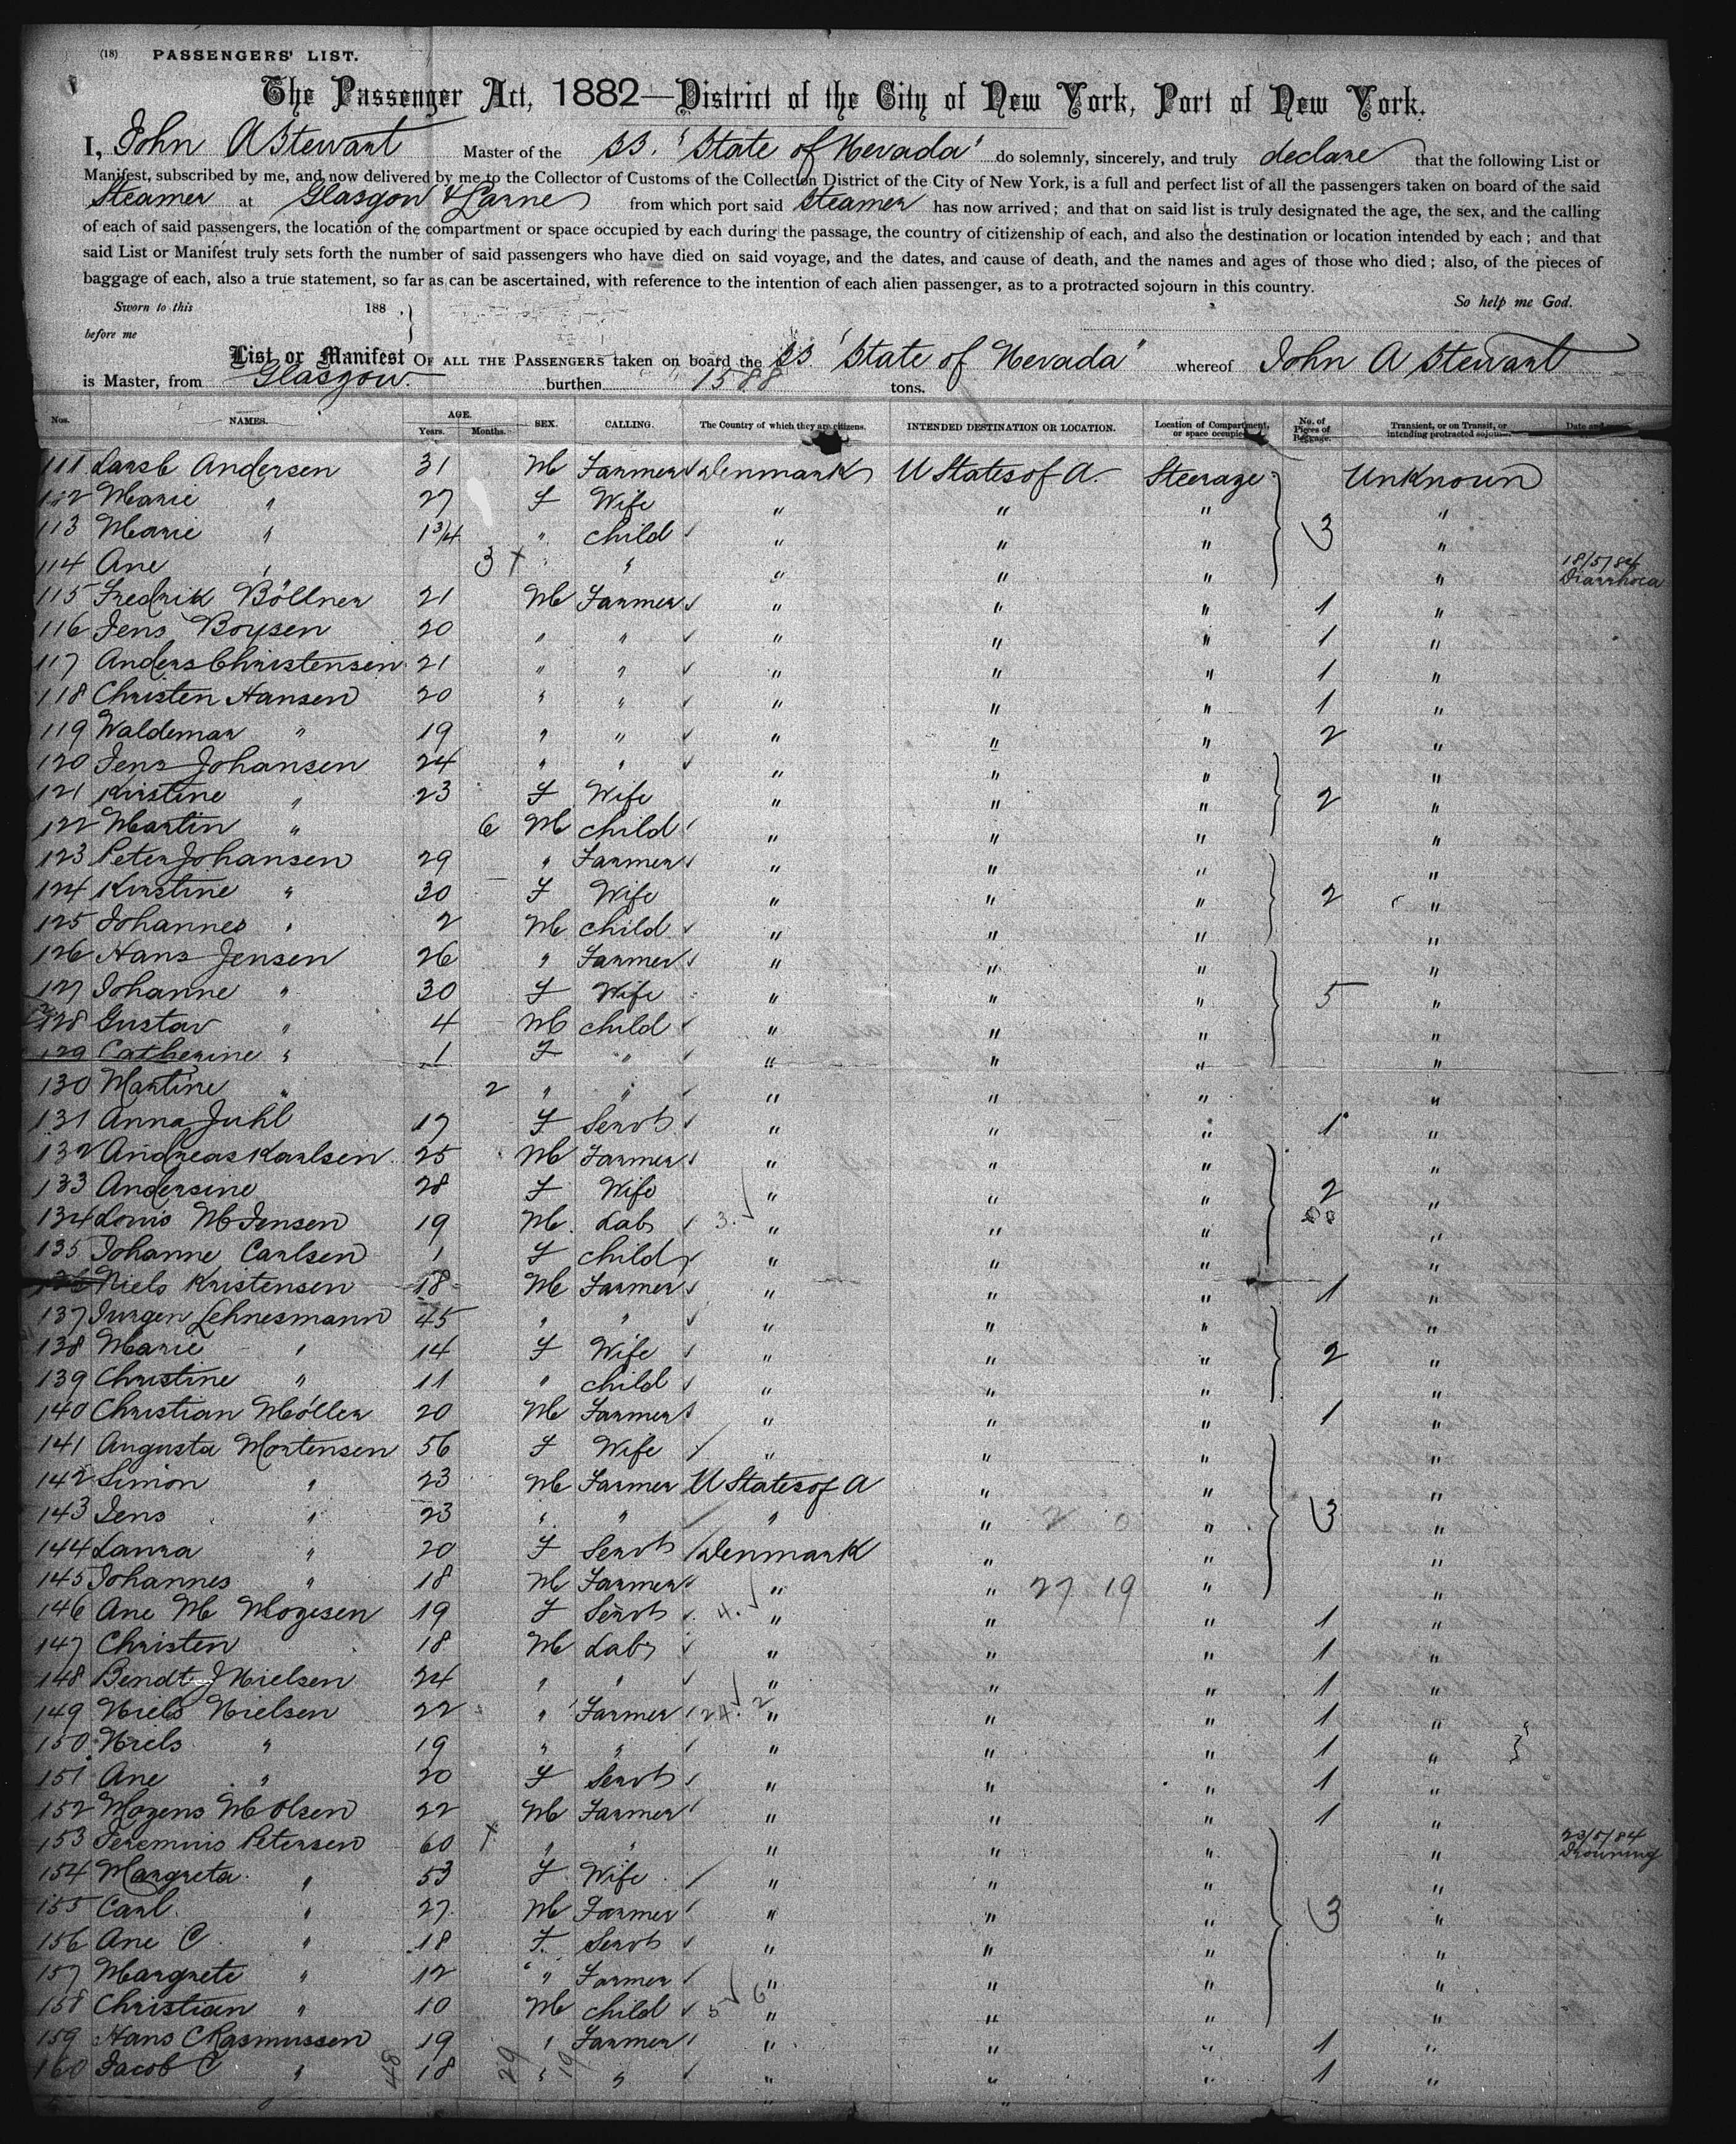 (18) PASSENGERS' LIST.
The Passenger Act, 1882—District of the City of New York, Port of New York.
I, John A Stewart Master of the SS. "State of Nevada" do solemnly, sincerely, and truly declare that the following List or
Manifest, subscribed by me, and now delivered by me to the Collector of Customs of the Collection District of the City of New York, is a full and perfect list of all the passengers taken on board of the said
Steamer at Glasgow & Larne from which port said Steamer has now arrived; and that on said list is truly designated the age, the sex, and the calling
of each of said passengers, the location of the compartment or space occupied by each during the passage, the country of citizenship of each, and also the destination or location intended by each; and that
said List or Manifest truly sets forth the number of said passengers who have died on said voyage, and the dates, and cause of death, and the names and ages of those who died; also, of the pieces of
baggage of each, also a true statement, so far as can be ascertained, with reference to the intention of each alien passenger, as to a protracted sojourn in this country.
Sworn to this 188 So help me God.
before me
List or Manifest OF ALL THE PASSENGERS taken on board the SS "State of Nevada" whereof John A Stewart
is Master, from Glasgow. burthen 1588 tons.
Nos. NAMES. AGE. Years. Months. SEX. CALLING. The Country of which they are citizens. INTENDED DESTINATION OR LOCATION. Location of Compartment, or space occupied No. of Pieces of Baggage. Transient, or on Transit, or intending protracted sojourn. Date and
111 Lars C Andersen 31 M Farmer Denmark U States of A. Steerage Unknown
112 Marie " 27 F Wife " " " "
113 Marie " 1 3/4 " child " " " 3 "
114 Ane " 3 + " " " " " " 18/5/84 Diarrhoea
115 Fredrik Böllner 21 M Farmer " " " 1 "
116 Jens Boysen 20 " " " " " 1 "
117 Anders Christensen 21 " " " " " 1 "
118 Christen Hansen 20 " " " " " 1 "
119 Waldemar " 19 " " " " " 2 "
120 Jens Johansen 24 " " " " " "
121 Kirstine " 23 F Wife " " " 2 "
122 Martin " 6 M child " " " "
123 Peter Johansen 29 " Farmer " " " "
124 Kirstine " 30 F Wife " " " 2 "
125 Johannes " 2 M child " " " "
126 Hans Jensen 26 " Farmer " " " "
127 Johanne " 30 F Wife " " " 5 "
128 Gustav " 4 M child " " " "
129 Catherine " 1 F " " " " "
130 Martine " 2 " " " " " "
131 Anna Juhl 17 F Servt " " " 1 "
132 Andreas Karlsen 25 M Farmer " " " "
133 Andersine 28 F Wife " " " 2 "
134 Louis M Jensen 19 M. Labr 3. " " " "
135 Johanne Carlsen 1 F child " " " "
Niels Kristensen 18 M Farmer " " " 1 "
137 Jurgen Lehnesmann 45 " " " " " "
138 Marie " 14 F Wife " " " 2 "
139 Christine " 11 " child " " " "
140 Christian Möller 20 M Farmer " " " 1 "
141 Augusta Mortensen 56 F Wife " " " "
142 Simon " 23 M Farmer U States of A " " "
143 Jens " 23 " " " " 2 0 " 3 "
144 Laura " 20 F Servt Denmark " " "
145 Johannes " 18 M Farmer " " 27 19 " "
146 Ane M Mogesen 19 F Servt 4. " " " 1 "
147 Christen 18 M Labr " " " 1 "
148 Bendt J Nielsen 24 " " " " " 1 "
149 Niels Nielsen 22 " Farmer 24. 2 " " " 1 "
150 Niels " 19 " " " " " 1 "
151 Ane " 20 F Servt " " " 1 "
152 Mogens M Olsen 22 M Farmer " " " 1 "
153 Jeremnis Petersen 60 + " " " " " " 23/5/84 Drowning
154 Margreta " 53 F Wife " " " "
155 Carl " 27 M Farmer " " " 3 "
156 Ane C " 18 F. Servt " " " "
157 Margrete " 12 " Farmer " " " "
158 Christian " 10 M child 5 6 " " " "
159 Hans C Rasmussen 19 " Farmer " " " 1 "
160 Jacob C " 18 " " " " " 1 "
48 29 19